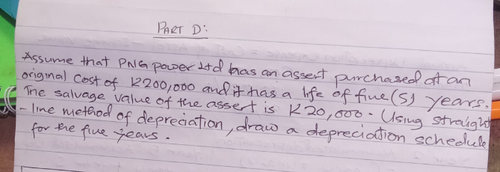 PART D:
Assume that PNG power Ltd has an assert purchased at an
original cost of K200,000 and it has a life of five (5) years.
The salvage value of the assert is K20,000. Using straight
-line method of depreciation, draw a depreciation schedule
for the five years.